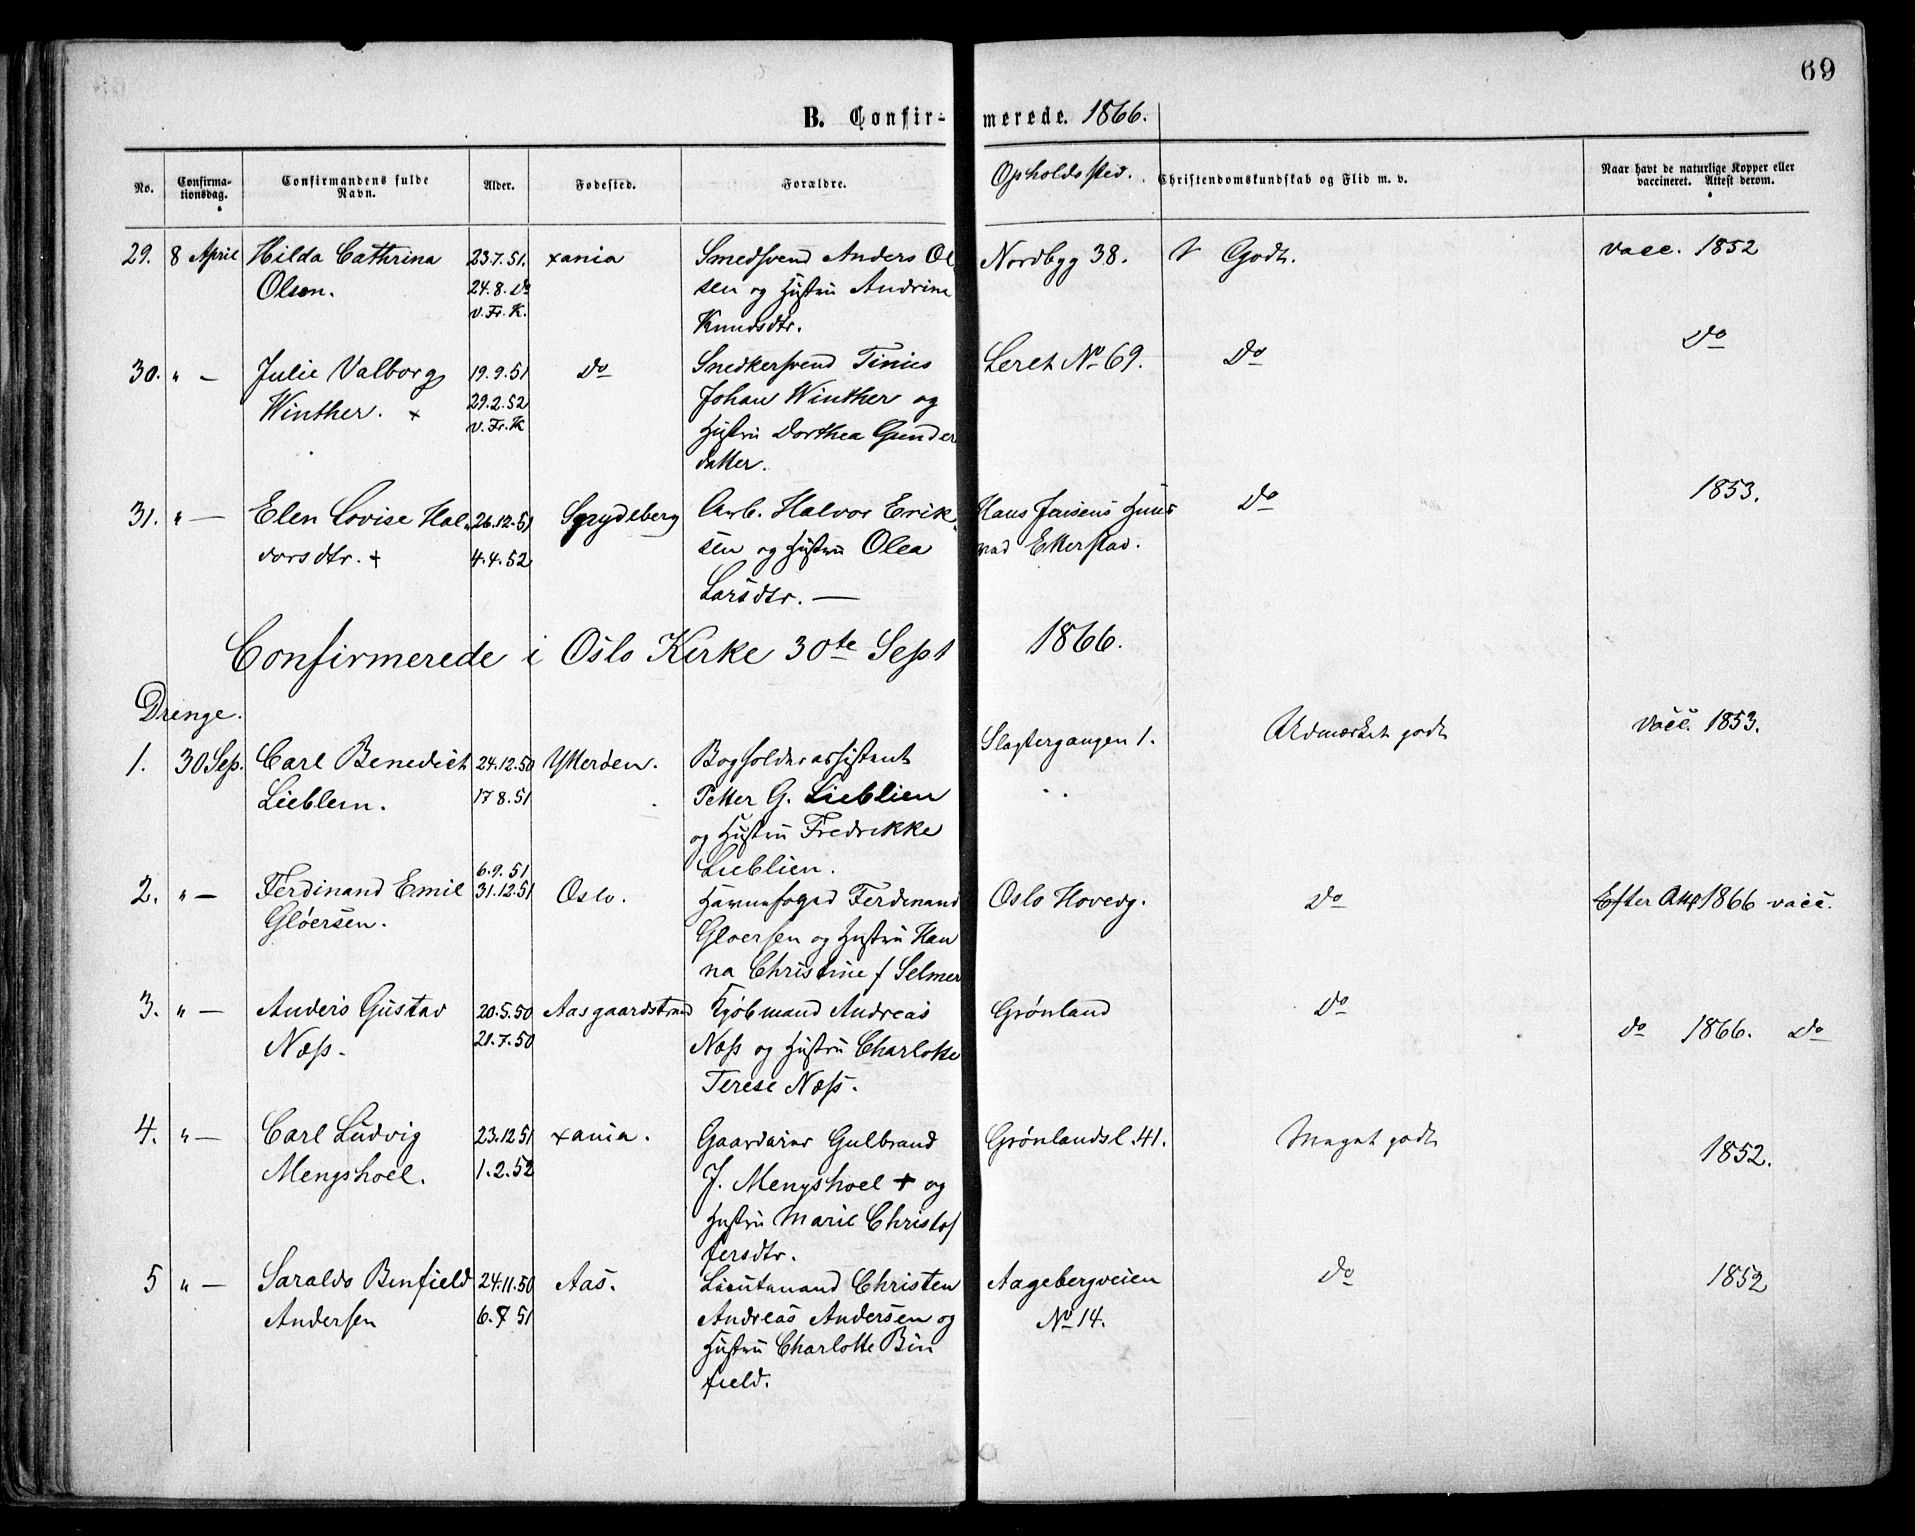 69
B. Confirmerede. 1866.
No.
Confirmationsdag.
Confirmandens fulde Navn.
Alder.
Fødested.
Forældre.
Opholdssted.
Christendomskundskab og Flid m. v.
Naar havt de naturlige Kopper eller vaccineret. Attest derom.
29. 8 April Hilda Cathrina 23.7.51. xania Smedsvend Anders Ol Nordbyg 38. Godt. vacc. 1852
Olsen. 24.8. Do sen og Hustru Andrine
v. Fr. K. Knudsdtr.
30. " — Julie Valborg 19.9.51 Do Snedkersvend Tinius Leret No 69. Do Do
Winther. + 29.2.52 Johan Winther og
v. Fr. K Hustru Dorthea Gunder
datter.
31. " — Elen Lovise Hal 26.12.51 Spydeberg Arb. Halvor Erik Hans Jensens Huus Do 1853.
vorsdtr. + 4.4.52 sen og Hustru Olea ved Ekerstad.
Larsdtr. —
Confirmerede i Oslo Kirke 30te Sept 1866.
Drenge.
1. 30 Sep. Carl Benedict 24.12.50 Ytterøen. Bogholderassistent Slagtergangen 1. Udmærket godt vacc. 1853.
Lieblein. 17 8.51 Petter G. Lieblien
og Hustru Fredrikke
Lieblien.
2. " — Ferdinand Emil 6.9.51 Oslo. Havnefoged Ferdinand Oslo Hovedg. Do Efter Att 1866 vacc.
Gløersen. 31.12.51 Gloersen og Hustru Han
na Christine f Selmer
3. " — Anders Gustav 20.5.50 Aasgaardstrand Kjøbmand Andreas Grønland Do do 1866. Do
Næss. 21.7.50 Næss og Hustru Charlotte
Terese Næss.
4. " — Carl Ludvig 23.12 51 xania. Gaardeier Gulbrand Grønlandsl. 41. Meget godt 1852.
Mengshoel. 1.2.52 J. Mengshoel + og
Hustru Marie Christof
fersdtr.
5 " — Saralds Binfield 24.11.50 Aas. Lieutenand Christen Aagebergveien Do 1852
Andersen 6.7 51 Andreas Andersen og No 14.
Hustru Charlotte Bin
field.